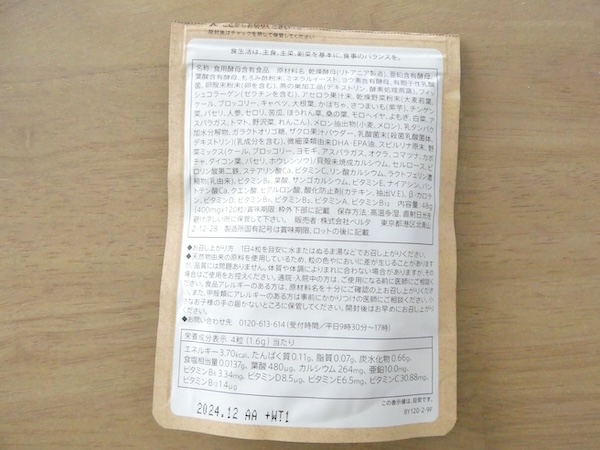 開封後はチャックを閉じて保管してください
食生活は、主食、主菜、副菜を基本に、食事のバランスを。
名称:食用酵母含有食品 原材料名:乾燥酵母(リトアニア製造)、亜鉛含有酵母、
葉酸含有酵母、もろみ酢粉末、ミネラルイースト、ヨウ素含有酵母、有胞子性乳酸
菌、卵殻末粉末(卵を含む)、燕の巣加工品(デキストリン、酵素処理燕窩)、フィッ
シュコラーゲン(ゼラチンを含む)、アセロラ果汁末、乾燥野菜粉末(大麦若葉、
ケール、ブロッコリー、キャベツ、大根葉、かぼちゃ、さつまいも(紫芋)、チンゲン
菜、パセリ、人参、セロリ、苦瓜、ほうれん草、桑の葉、モロヘイヤ、よもぎ、白菜、ア
スパラガス、トマト、野沢菜、れんこん)、メロン抽出物(小麦、メロン)、乳タンパク
加水分解物、ガラクトオリゴ糖、ザクロ果汁パウダー、乳酸菌末(殺菌乳酸菌体、
デキストリン)(乳成分を含む)、微細藻類由来DHA・EPA油、スピルリナ原末、野
菜ミックス(ケール、ブロッコリー、ヨモギ、アスパラガス、オクラ、コマツナ、カボ
チャ、ダイコン葉、パセリ、ホウレンソウ)/貝殻未焼成カルシウム、セルロース、ピ
ロリン酸第二鉄、ステアリン酸Ca、ビタミンC、リン酸カルシウム、ラクトフェリン濃
縮物(乳由来)、ビタミンB₆、葉酸、サンゴカルシウム、ビタミンE、ナイアシン、パン
トテン酸Ca、クエン酸、ヒアルロン酸、酸化防止剤(カテキン、抽出V.E)、β-カロテ
ン、ビタミンD、ビタミンB₁、ビタミンB₂、ビタミンA、ビタミンB₁₂ 内容量:48g
(400mg×120粒)賞味期限:枠外下部に記載 保存方法:高温多湿、直射日光を
避け涼しい所に保管して下さい。 販売者:株式会社ベルタ 東京都港区北青山
2-12-28 製造所固有記号は賞味期限、ロットの後に記載
◆お召し上がり方:1日4粒を目安に水またはぬるま湯などでお召し上がりください。
◆天然物由来の原料を使用しているため、粒の色やにおいに差が生じることがあります
が、品質には問題ありません。体質や体調によりまれに合わない場合がありますが、その
場合はご使用をお控えください。通院・入院中の方は、ご使用になる前に医師にご相談く
ださい。食品アレルギーのある方は、原材料名を十分にご確認の上お召し上がりくださ
い。また、甲殻類にアレルギーのある方は事前にかかりつけの医師にご相談ください。小
さなお子様の手の届かないところに保管してください。開封後はお早めにお召し上がりく
ださい。
◆お問い合わせ先 0120-613-614(受付時間/平日9時30分〜17時)
栄養成分表示 4粒(1.6g)当たり
エネルギー3.70kcal、たんぱく質0.11g、脂質0.07g、炭水化物0.66g、
食塩相当量0.0137g、葉酸480μg、カルシウム264mg、亜鉛10.0mg、
ビタミンB₆3.34mg、ビタミンD8.5μg、ビタミンE6.5mg、ビタミンC30.88mg、
ビタミンB₁₂1.4μg
この表示値は、目安です。
BY120-2-99
2024.12 AA +WT1